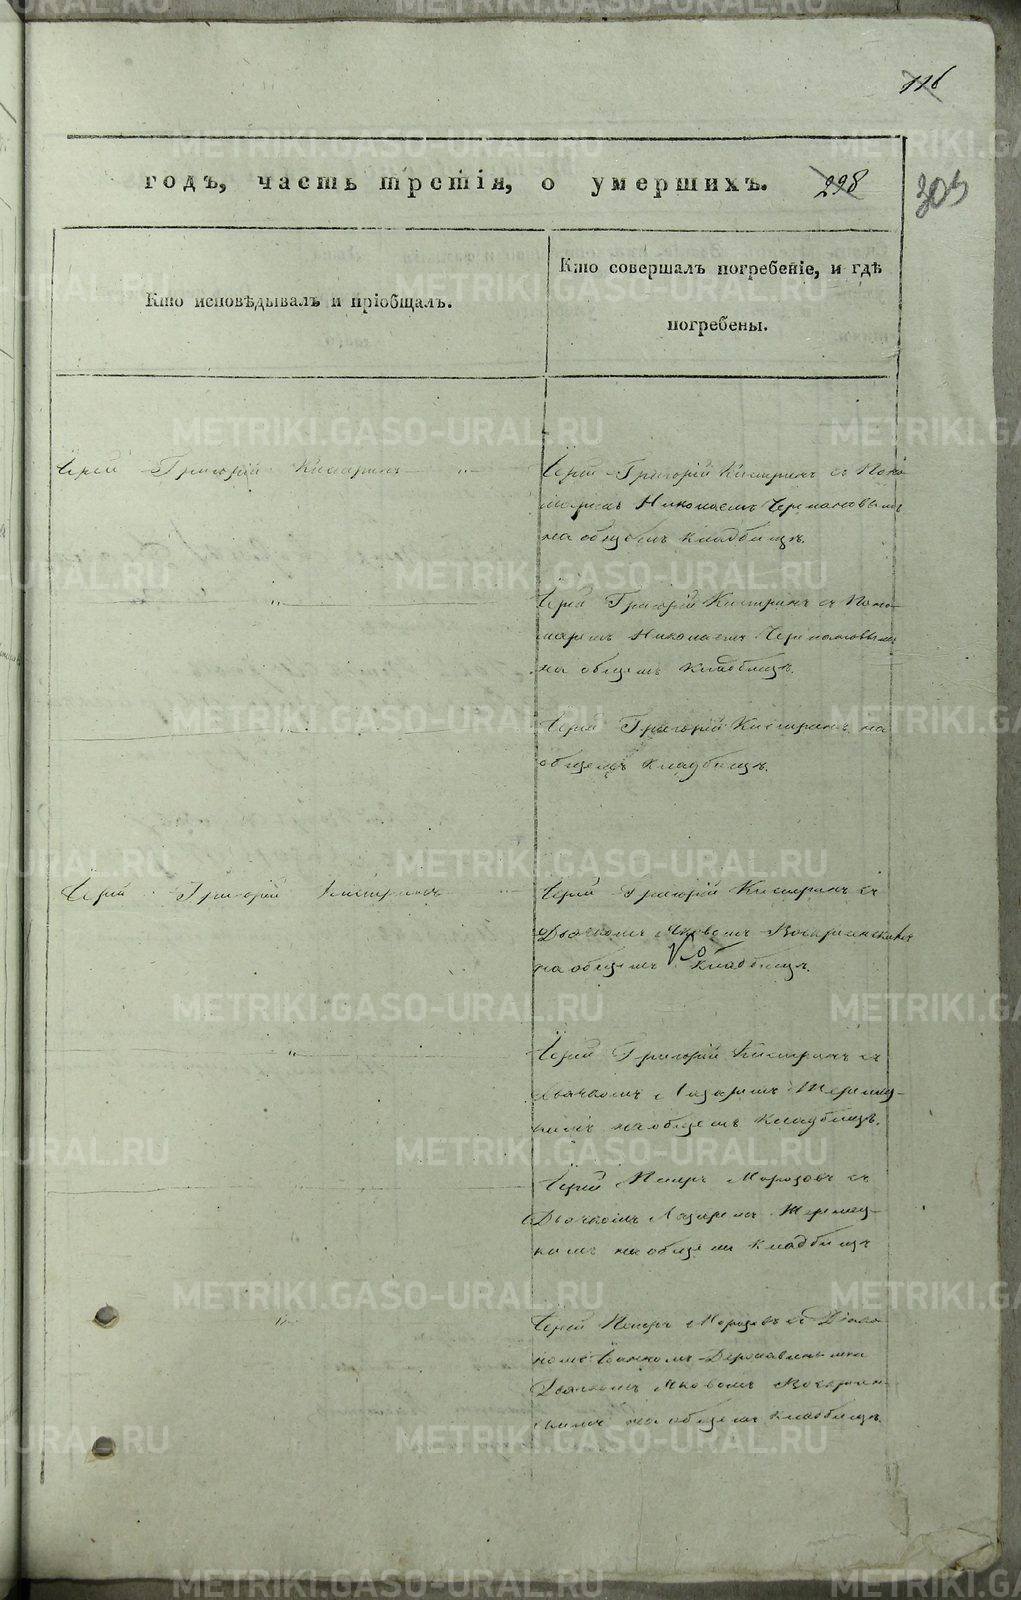 116
годъ, часть третія, о умершихъ. 298
305
Кто исповѣдывалъ и пріобщалъ.
Кто совершалъ погребеніе, и гдѣ
погребены.
Іерей Григорій Кистринъ "
Іерей Григорій Кистринъ съ Поно
маремъ Николаемъ
на общемъ кладбищѣ.
"
Іерей Григорій Кистринъ съ Поно-
маремъ Николаемъ
на общемъ кладбищѣ.
"
Іерей Григорій Кистринъ на
общемъ кладбищѣ.
Іерей Григорій Кистринъ "
Іерей Григорій Кистринъ съ
Дьячкомъ Яковомъ Воскресенскимъ
на общемъ кладбищѣ.
"
Іерей Григорій Кистринъ съ
Дьячкомъ Лазаремъ
на общемъ кладбищѣ.
Іерей Петръ Морозовъ съ
Дьячкомъ Лазаремъ
на общемъ кладбищѣ
"
Іерей Петръ Морозовъ съ Діако
номъ
Дьячкомъ Яковомъ Воскресен-
скимъ на общемъ кладбищѣ
METRIKI.GASO-URAL.RU